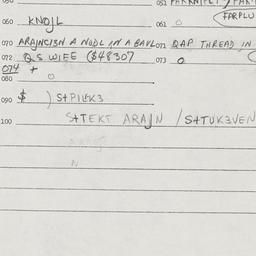 060 KNOJL 061 O
FARPLU
070 ARAJNCISN A NODL IN A BAYL 071 QAP THREAD IN
072 QS WIEE ($48307 073 O
074 +
080 O
090 $ ) S+PILEK3
100 S+TEKT ARAJN / S+TUK3VEN